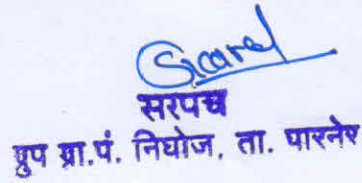 सरपंच
ग्रुप ग्रा.पं. निघोज, ता. पारनेर